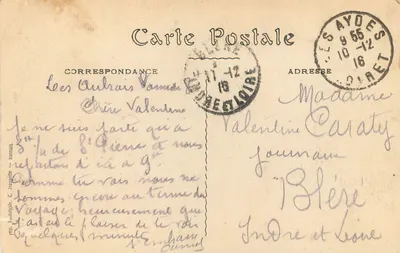 Carte Postale
CORRESPONDANCE
ADRESSE
BLÉRÉ
11-12
16
INDRE ET LOIRE
LES AYDES
9 55
10-12
16
LOIRET
Les Aubrais Samedi
Chère Valentine
Je ne suis parti qu'à
de St Pierre et nous
repartons d'ici à 9h
Comme tu vois nous ne
sommes encore au terme du
voyage heureusement que
j'ai eu le plaisir de te voir
quelques minutes
Je t'embrasse
Madame
Valentine Caraty
journaux
Bléré
Indre et Loire